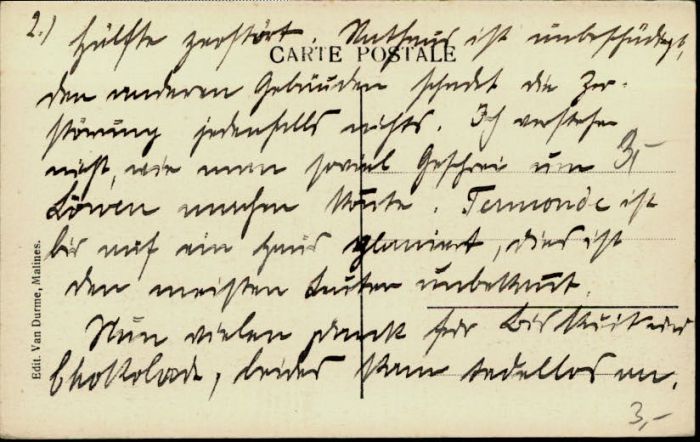 2.)
Hälfte zerstört. Rathaus ist unbeschädigt,
CARTE POSTALE
den anderen Gebäuden schadet die Zer-
störung jedenfalls nichts. Ich verstehe
nicht, wie man soviel Geschrei um
Löwen machen konnte. Termonde ist
bis auf ein Haus planiert, dies ist
den meisten Leuten unbekannt.
Nun vielen Dank für Biskuit und
Chokolade, beides kam tadellos an.
3,-
Edit. Van Durme, Malines.